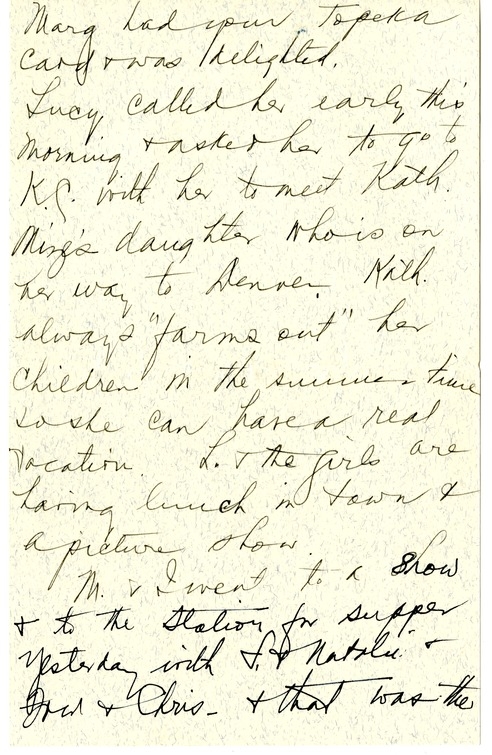 Marg had your Topeka
card & was delighted.
Lucy called her early this
morning & asked her to go to
K.C. with her to meet Kath.
daughter who is on
her way to Denver. Kath.
always "farms out" her
children in the summer time
so she can have a real
vacation. L. & the girls are
having lunch in town &
a picture show.
M. & I went to a show
& to the Station for supper
yesterday with & Natalie &
& Chris - & that was the